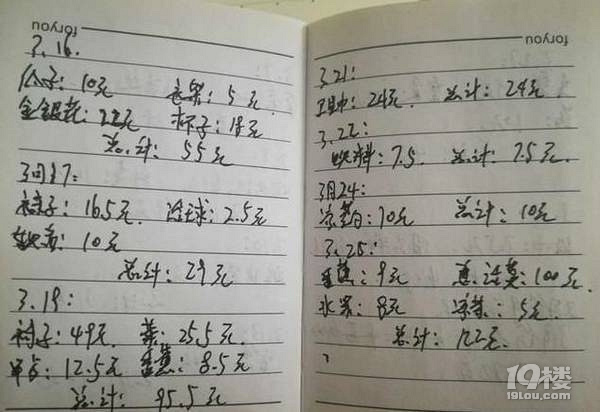 foryou
3.16.
瓜子：10元 水果：5元
金银花：22元 杯子：18元
总计：55元
3月17：
袜子：16.5元 洁球：2.5元
10元
总计：29元
3.19：
裤子：49元 菜：25.5元
早点：12.5元 香蕉：8.5元
总计：95.5元
foryou
3.21：
24元 总计：24元
3.22：
饮料：7.5. 总计：7.5元
3月24：
10元 总计：10元
3.25：
香蕉：9元 话费：100元.
水果：8元 凉菜：5元.
总计：122元.
19楼
19lou.com